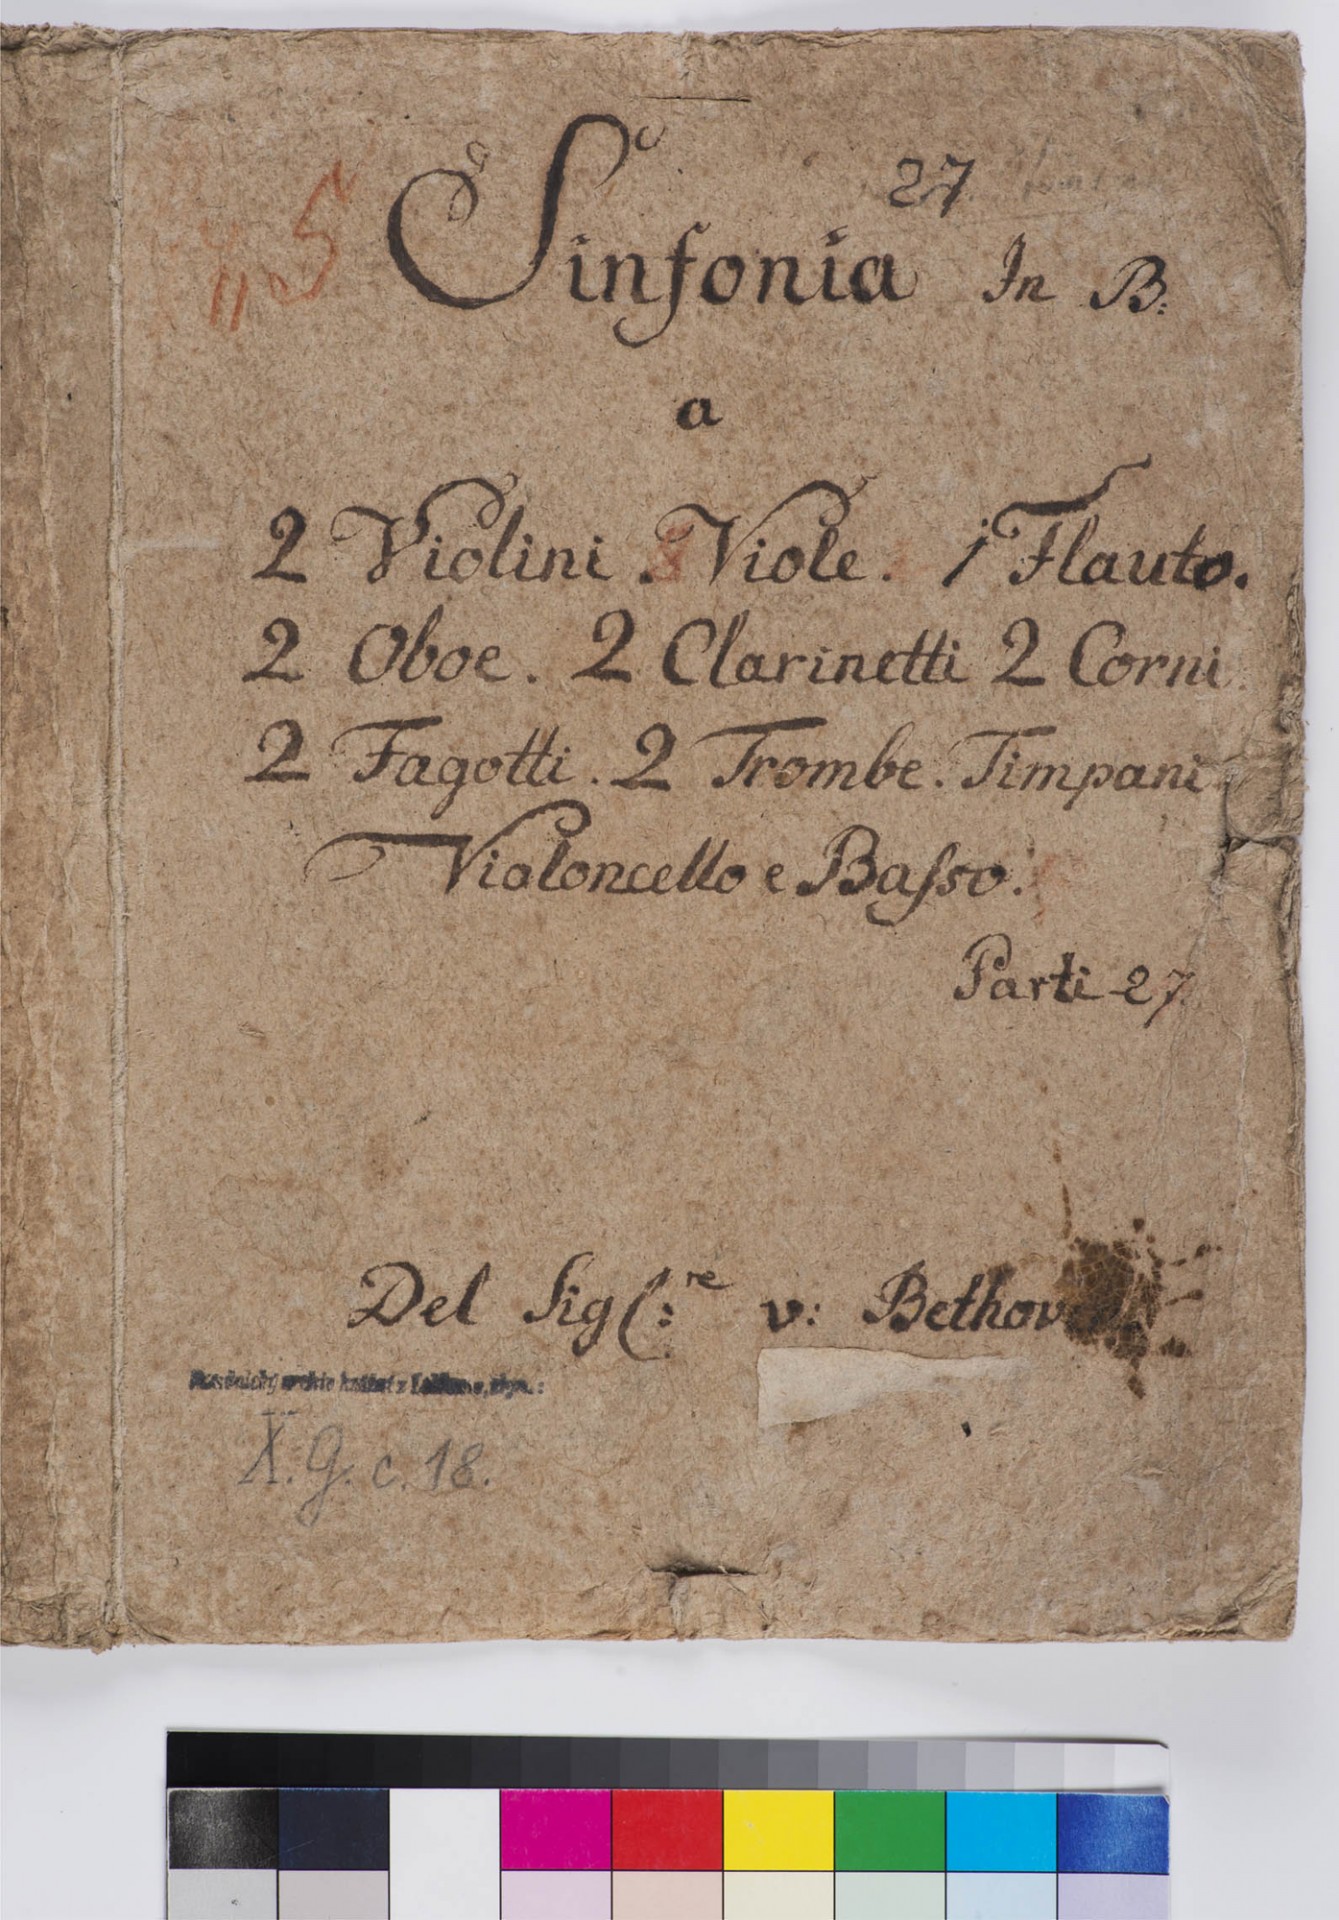 27
5
Sinfonia In B:
a
2 Violini. Viole. 1 Flauto.
2 Oboe. 2 Clarinetti 2 Corni.
2 Fagotti. 2 Trombe. Timpani
Violoncello e Baſso.
Parti 27.
Del Sig:re v: Bethoven.
X. G. c. 18.